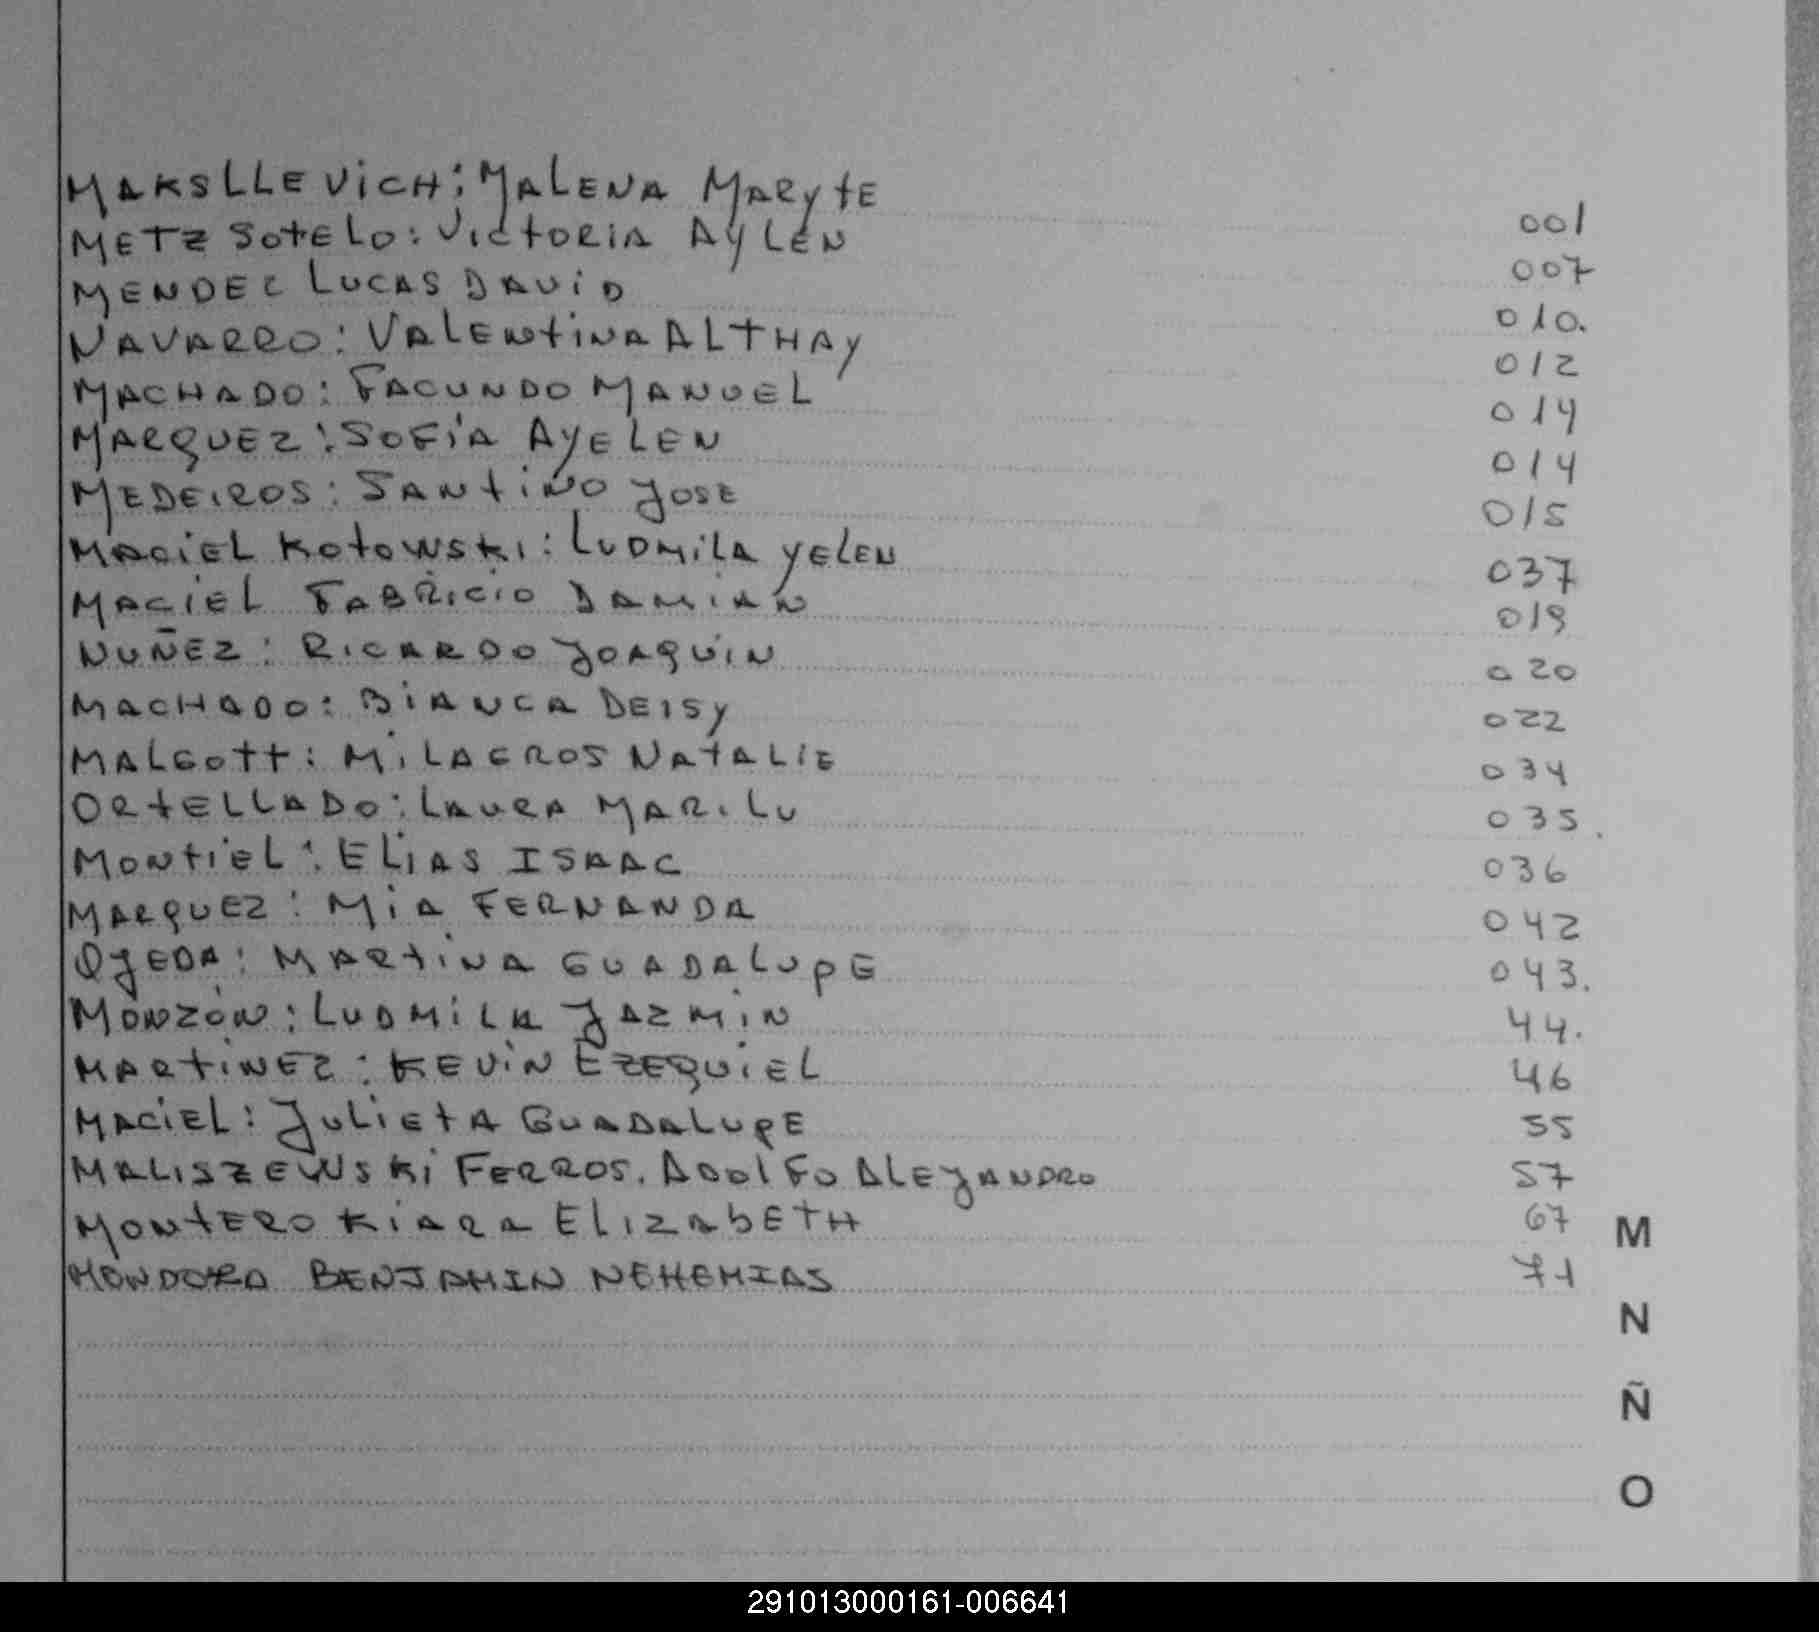 MAKSLLEVICH: MALENA MARYTE 001
METZ SOTELO: VICTORIA AYLEN 007
MENDEZ LUCAS DAVID 010.
NAVARRO: VALENTINA ALTHAY 012
MACHADO: FACUNDO MANUEL 014
MARQUEZ: SOFÍA AYELEN 014
MEDEIROS: SANTINO JOSE 015
MACIEL KOTOWSKI: LUDMILA YELEN 037
MACIEL FABRICIO DAMIAN 019
NUÑEZ: RICARDO JOAQUIN 020
MACHADO: BIANCA DEISY 022
MALGOTT: MILAGROS NATALIE 034
ORTELLADO: LAURA MARILU 035.
MONTIEL: ELIAS ISAAC 036
MARQUEZ: MIA FERNANDA 042
OJEDA: MARTINA GUADALUPE 043.
MONZÓN: LUDMILA JAZMIN 44.
MARTINEZ: KEVIN EZEQUIEL 46
MACIEL: JULIETA GUADALUPE 55
MALISZEWSKI FERROS. ADOLFO ALEJANDRO 57
MONTERO KIARA ELIZABETH 67
M
BENJAMIN NEHEMIAS 71
N
Ñ
O
291013000161-006641